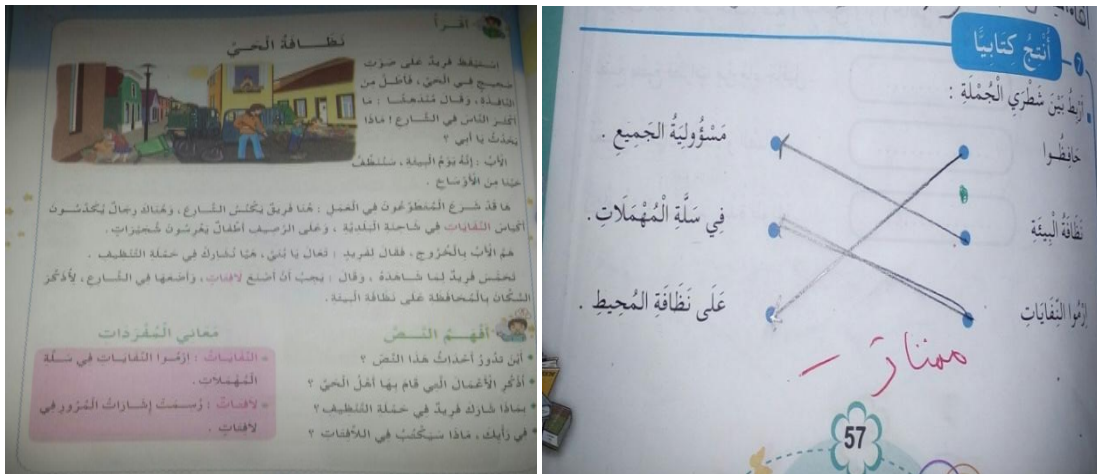 اقرأ
نَظَافَةُ الْحَيِّ
اِسْتَيْقَظَ فَرِيدٌ عَلَى صَوْتِ
ضَجِيجٍ فِي الْحَيِّ، فَأَطَلَّ مِنَ
النَّافِذَةِ، وَقَالَ مُنْدَهِشًا : مَا
أَكْثَرَ النَّاسَ فِي الشَّارِعِ ! مَاذَا
يَحْدُثُ يَا أَبِي ؟
الْأَبُ : إِنَّهُ يَوْمُ الْبِيئَةِ، سَنُنَظِّفُ
حَيَّنَا مِنَ الْأَوْسَاخِ .
هَا قَدْ شَرَعَ الْمُتَطَوِّعُونَ فِي الْعَمَلِ : هُنَا فَرِيقٌ يَكْنُسُ الشَّارِعَ، وَهُنَاكَ رِجَالٌ يُكَدِّسُونَ
أَكْيَاسَ النِّفَايَاتِ فِي شَاحِنَةِ الْبَلَدِيَّةِ ، وَعَلَى الرَّصِيفِ أَطْفَالٌ يَغْرِسُونَ شُجَيْرَاتٍ.
هَمَّ الْأَبُ بِالْخُرُوجِ، فَقَالَ لِفَرِيدٍ : تَعَالَ يَا بُنَيَّ، هَيَّا نُشَارِكُ فِي حَمْلَةِ التَّنْظِيفِ .
تَحَمَّسَ فَرِيدٌ لِمَا شَاهَدَهُ ، وَقَالَ : يَجِبُ أَنْ أَصْنَعَ لَافِتَاتٍ، وَأَضَعَهَا فِي الشَّارِعِ، لِأُذَكِّرَ
السُّكَّانَ بِالْمُحَافَظَةِ عَلَى نَظَافَةِ الْبِيئَةِ.
أَفْهَمُ النَّصَّ
• أَيْنَ تَدُورُ أَحْدَاثُ هَذَا النَّصِّ ؟
• أَذْكُرُ الْأَعْمَالَ الَّتِي قَامَ بِهَا أَهْلُ الْحَيِّ ؟
• بِمَاذَا شَارَكَ فَرِيدٌ فِي حَمْلَةِ التَّنْظِيفِ ؟
• فِي رَأْيِكَ، مَاذَا سَيَكْتُبُ فِي اللَّافِتَاتِ ؟
مَعَانِي الْمُفْرَدَاتِ
- النِّفَايَاتُ : ارْمُوا النِّفَايَاتِ فِي سَلَّةِ
الْمُهْمَلَاتِ .
- لَافِتَاتٌ : رُسِمَتْ إِشَارَاتُ الْمُرُورِ فِي
لَافِتَاتٍ .
7 أُنْتِجُ كِتَابِيًّا
أَرْبِطُ بَيْنَ شَطْرَيِ الْجُمْلَةِ :
حَافِظُوا
مَسْؤُولِيَةُ الجَمِيعِ .
نَظَافَةُ الْبِيئَةِ
فِي سَلَّةِ الْمُهْمَلَاتِ.
اِرْمُوا النِّفَايَاتِ
عَلَى نَظَافَةِ المُحِيطِ .
ممتاز
57